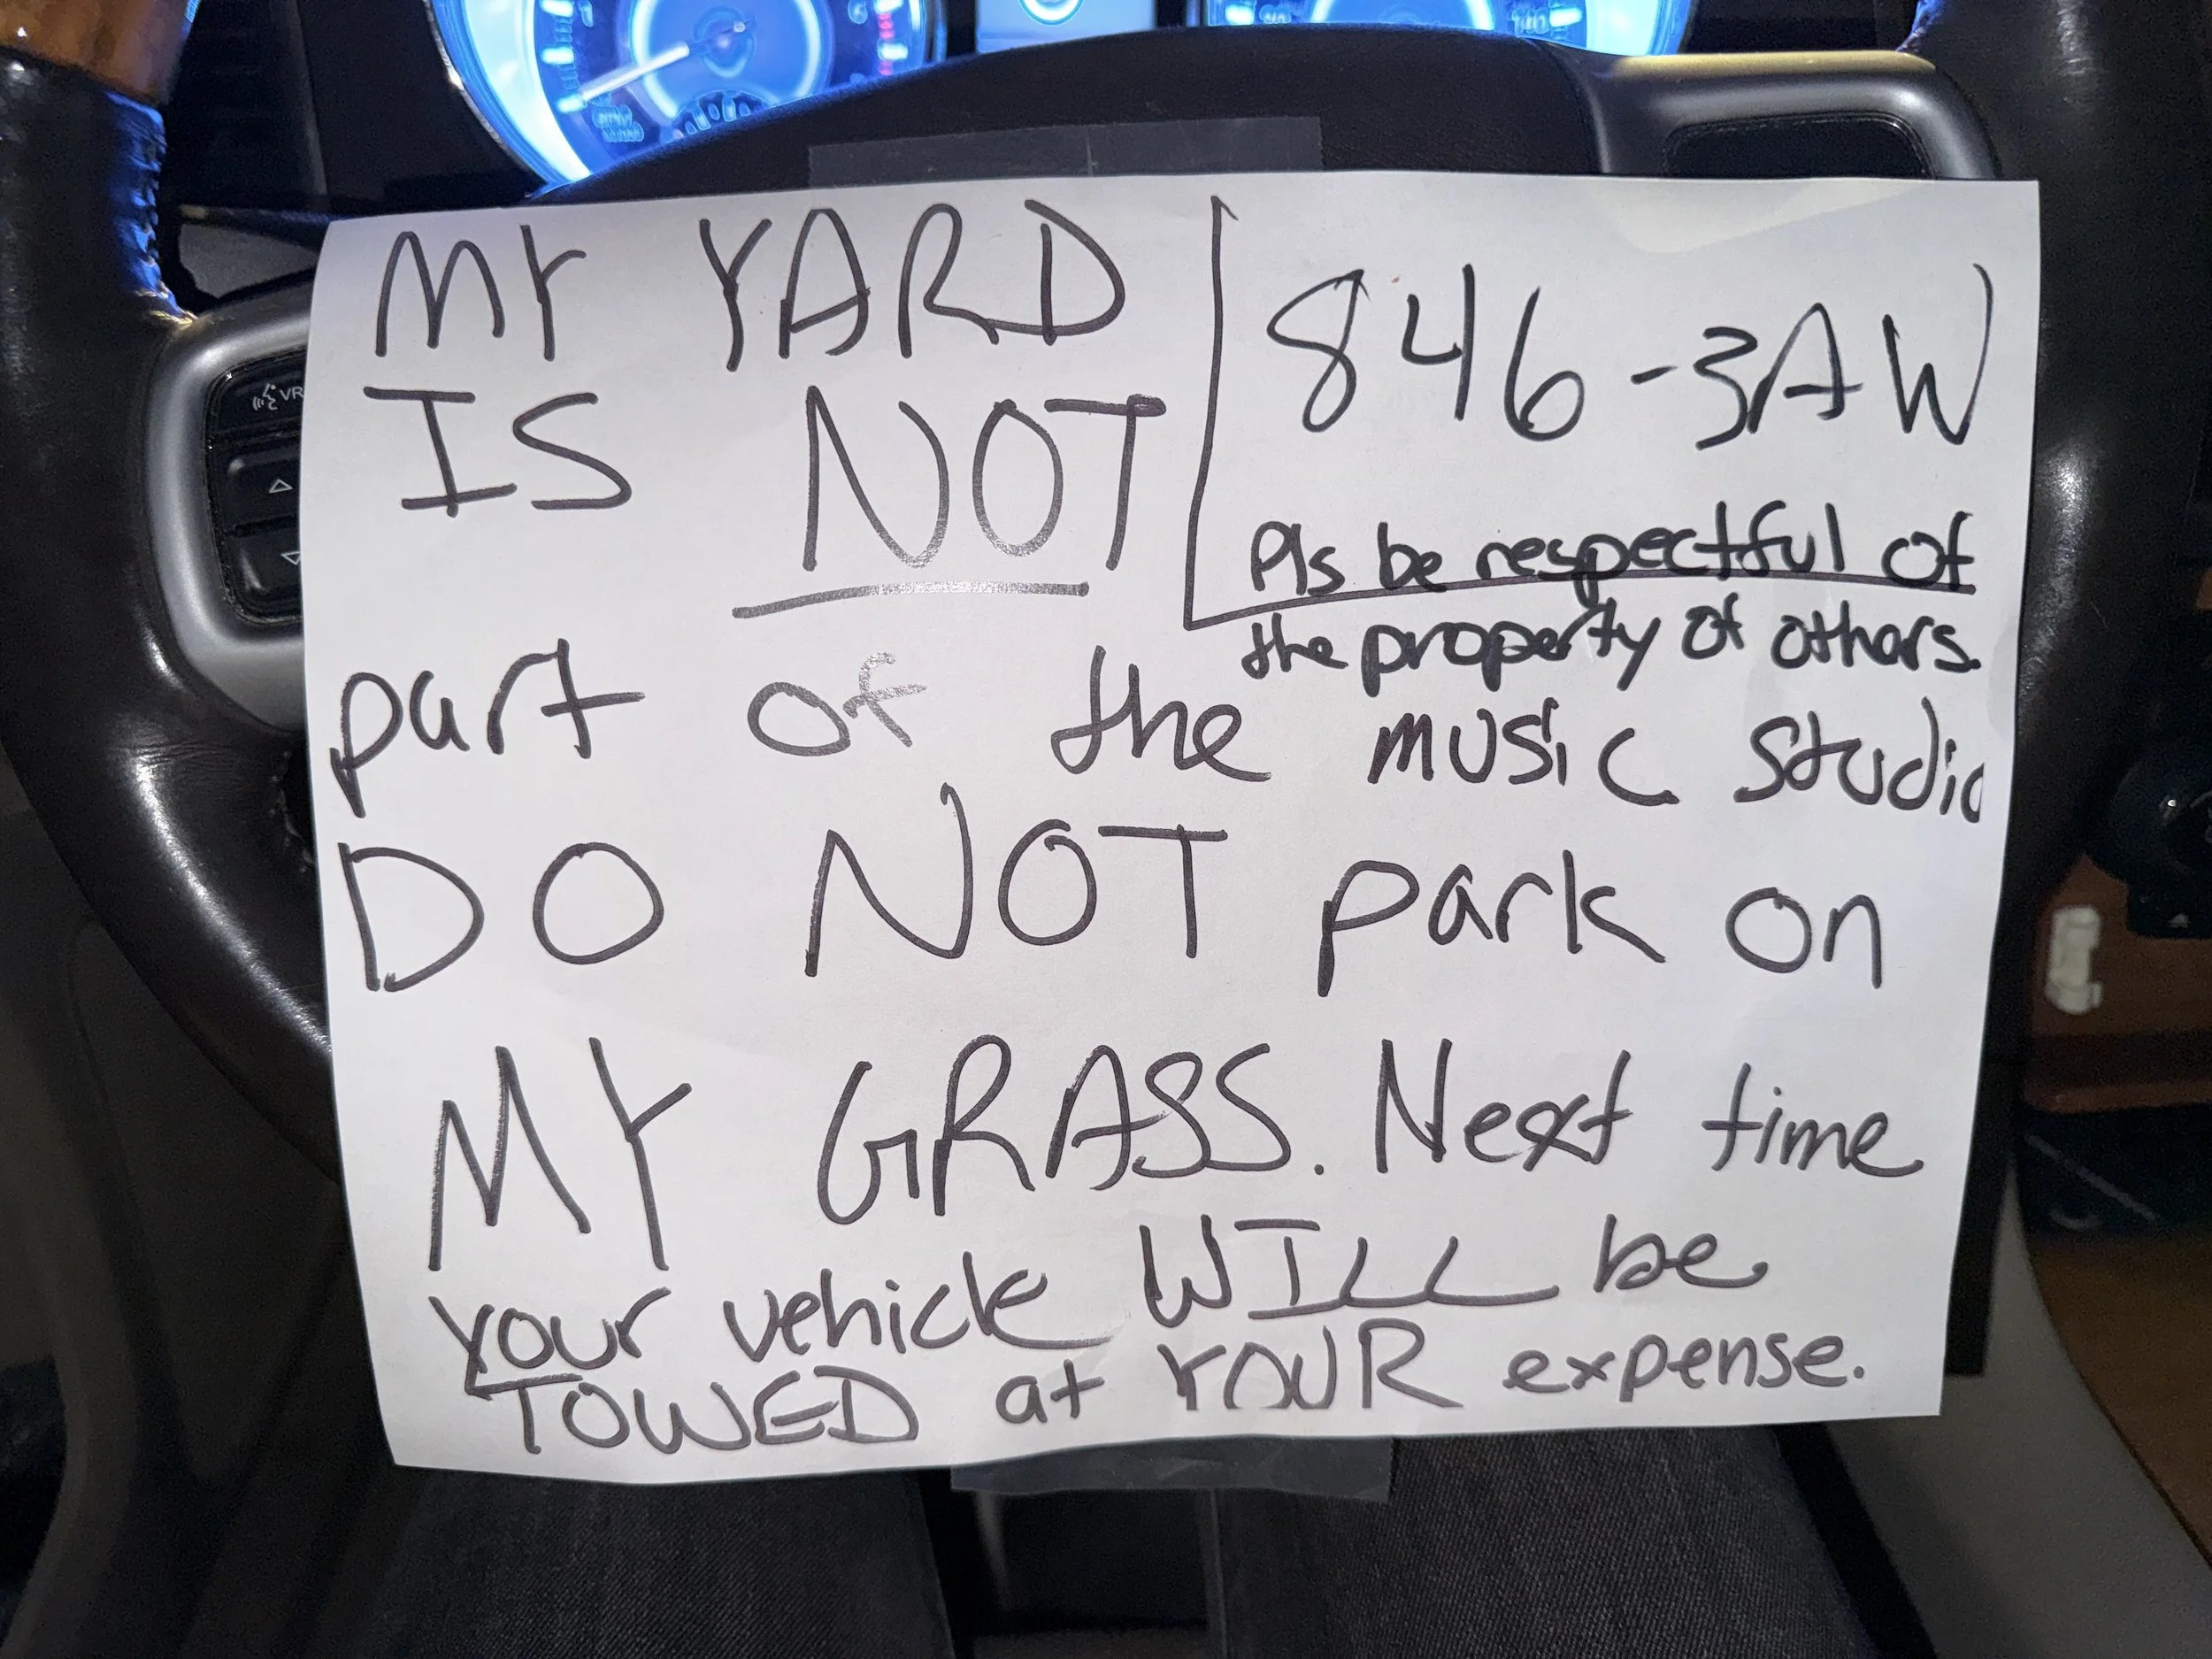 MY YARD
IS NOT
846-3AW
Pls be respectful of
the property of others.
part of the music studio
DO NOT park on
MY GRASS. Next time
your vehicle WILL be
TOWED at YOUR expense.
VR